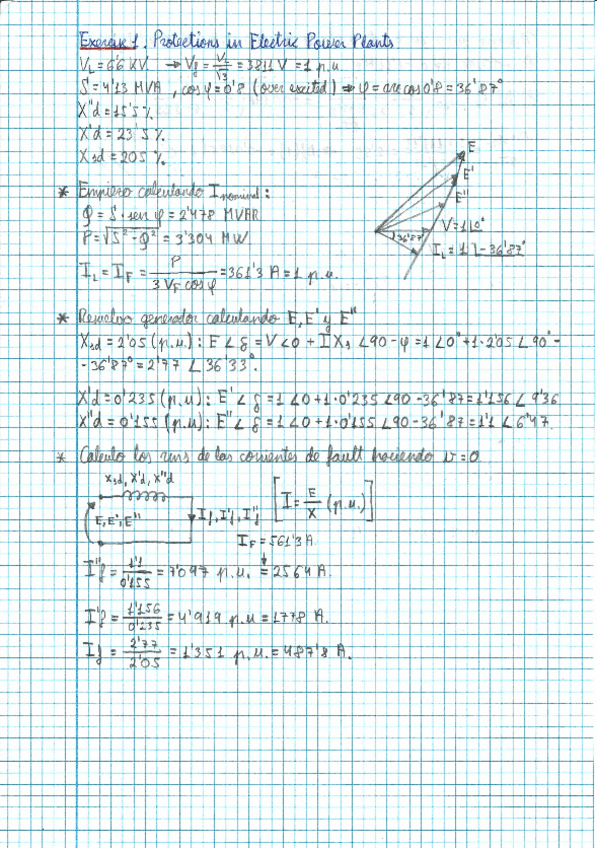 Exercise 1. Protections in Electric Power Plants
VL = 6'6 KV. → Vf = VL/√3 = 3811 V = 1 p.u
S = 4'13 MVA, cos φ = 0'8 (over excited) ⇒ φ = arc cos 0'8 = 36'87°
X''d = 15'5 %
X'd = 23'5 %
Xsd = 205 %
* Empiezo calculando I nominal:
Q = S · sen φ = 2'478 MVAR
P = √(S² - Q²) = 3'304 MW
IL = IF = P / (3 VF cos φ) = 361'3 A = 1 p.u.
E
E'
E''
V = 1∠0°
36'87°
IL = 1∠-36'87°
* Resuelvo generador calculando E, E' y E''
Xsd = 2'05 (p.u): E∠δ = V∠0 + I Xs ∠90-φ = 1∠0° + 1·2'05 ∠90° -
- 36'87° = 2'77 ∠36'33°.
X'd = 0'235 (p.u): E'∠δ = 1∠0 + 1·0'235 ∠90 - 36'87 = 1'156 ∠9'36
X''d = 0'155 (p.u): E''∠δ = 1∠0 + 1·0'155 ∠90 - 36'87 = 1'1 ∠6'47.
* Calculo los rms de las corrientes de fault haciendo v = 0
Xsd, X'd, X''d
E, E', E''
If, I'f, I''f
[I = E/X (p.u.)]
IF = 561'3 A
I''f = 1'1/0'155 = 7'097 p.u. = 2564 A.
I'f = 1'156/0'235 = 4'919 p.u = 1778 A.
If = 2'77/2'05 = 1'351 p.u. = 487'8 A.